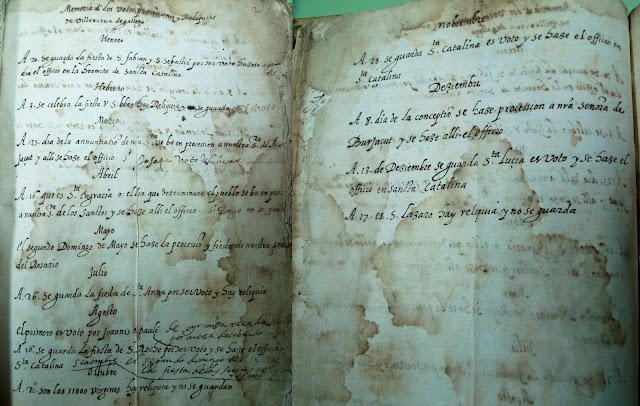 Memoria d los Votos processiones y Reliquias
de Villanueva de gallego
Henero
A. 20. se guarda la fiesta de S. fabian y S. sebastia por ser voto hase se
dia el officio en la Hermita de sancta Catalina
Hebrero
A 3. se celebra la fiesta S. blas hay Reliquia no se guarda
Março
A. 25. dia de la annuntiatio de n.a S.a se ba en procession a nuestra S.ra de Bur
jacut y alli se hase el officio
Abril
A. 16 que es S.ta Engracia o el dia que determinare el pueblo se ba en
a nuestra S.ra de los Sanctos y se hase alli el officio
Mayo
el segundo Domingo de Mayo se hase la procession y fiesta de nuestra seno
del Rosario
Julio
A. 26. se guarda la fiesta de S.ta Anna por ser voto y hay reliquia
Agosto
el primero es voto por Joannis et pauli
A. 16. se guarda la fiesta de S. Roche por ser voto y se hase el officio
S.ta Catalina
segundo domingo del
Octubre
A. 21. son las 11000 virgines hay reliquia y no se guardan
Nobiembre
A. 25. se guarda S.ta Catalina es voto y se hase el officio en
S.ta Catalina
Deziembre
A 8. dia de la conceptio se hase procession a nrã senora de
Burjacut y se hase alli el officio
A. 13. de Desiembre se guarda S.ta Lucia es voto y se hase el
officio en sancta Catalina
A 17. es S. Lazaro hay relquia y no se guarda